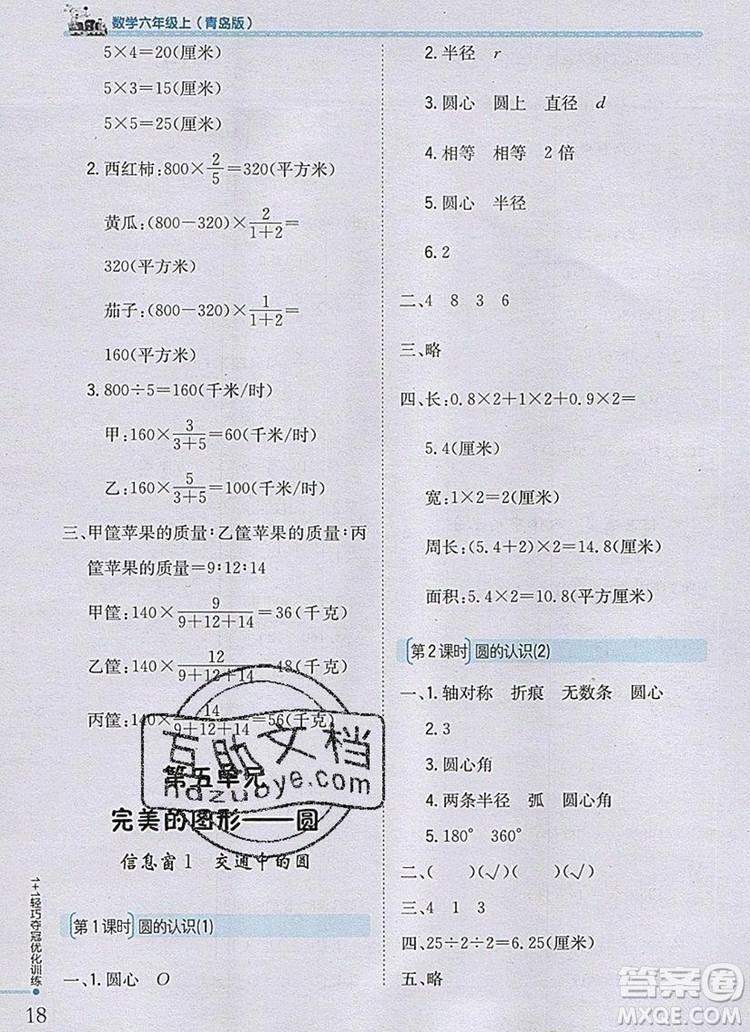 数学六年级上（青岛版）
5×4=20(厘米)
5×3=15(厘米)
5×5=25(厘米)
2.西红柿:800×2/5=320(平方米)
黄瓜:(800-320)×2/(1+2)=
320(平方米)
茄子:(800-320)×1/(1+2)=
160(平方米)
3.800÷5=160(千米/时)
甲:160×3/(3+5)=60(千米/时)
乙:160×5/(3+5)=100(千米/时)
三、甲筐苹果的质量:乙筐苹果的质量:丙
筐苹果的质量=9:12:14
甲筐:140×9/(9+12+14)=36(千克)
乙筐:140×12/(9+12+14)=48(千克)
丙筐:140×14/(9+12+14)=56(千克)
第五单元
完美的图形——圆
信息窗1 交通中的圆
第1课时 圆的认识(1)
一、1.圆心 O
2.半径 r
3.圆心 圆上 直径 d
4.相等 相等 2倍
5.圆心 半径
6.2
二、4 8 3 6
三、略
四、长:0.8×2+1×2+0.9×2=
5.4(厘米)
宽:1×2=2(厘米)
周长:(5.4+2)×2=14.8(厘米)
面积:5.4×2=10.8(平方厘米)
第2课时 圆的认识(2)
一、1.轴对称 折痕 无数条 圆心
2.3
3.圆心角
4.两条半径 弧 圆心角
5.180° 360°
二、( ) (√)(√)( )
三、略
四、25÷2÷2=6.25(厘米)
五、略
1+1轻巧夺冠优化训练
18
互助文档
hdzuoye.com
答案圈
MXQE.COM